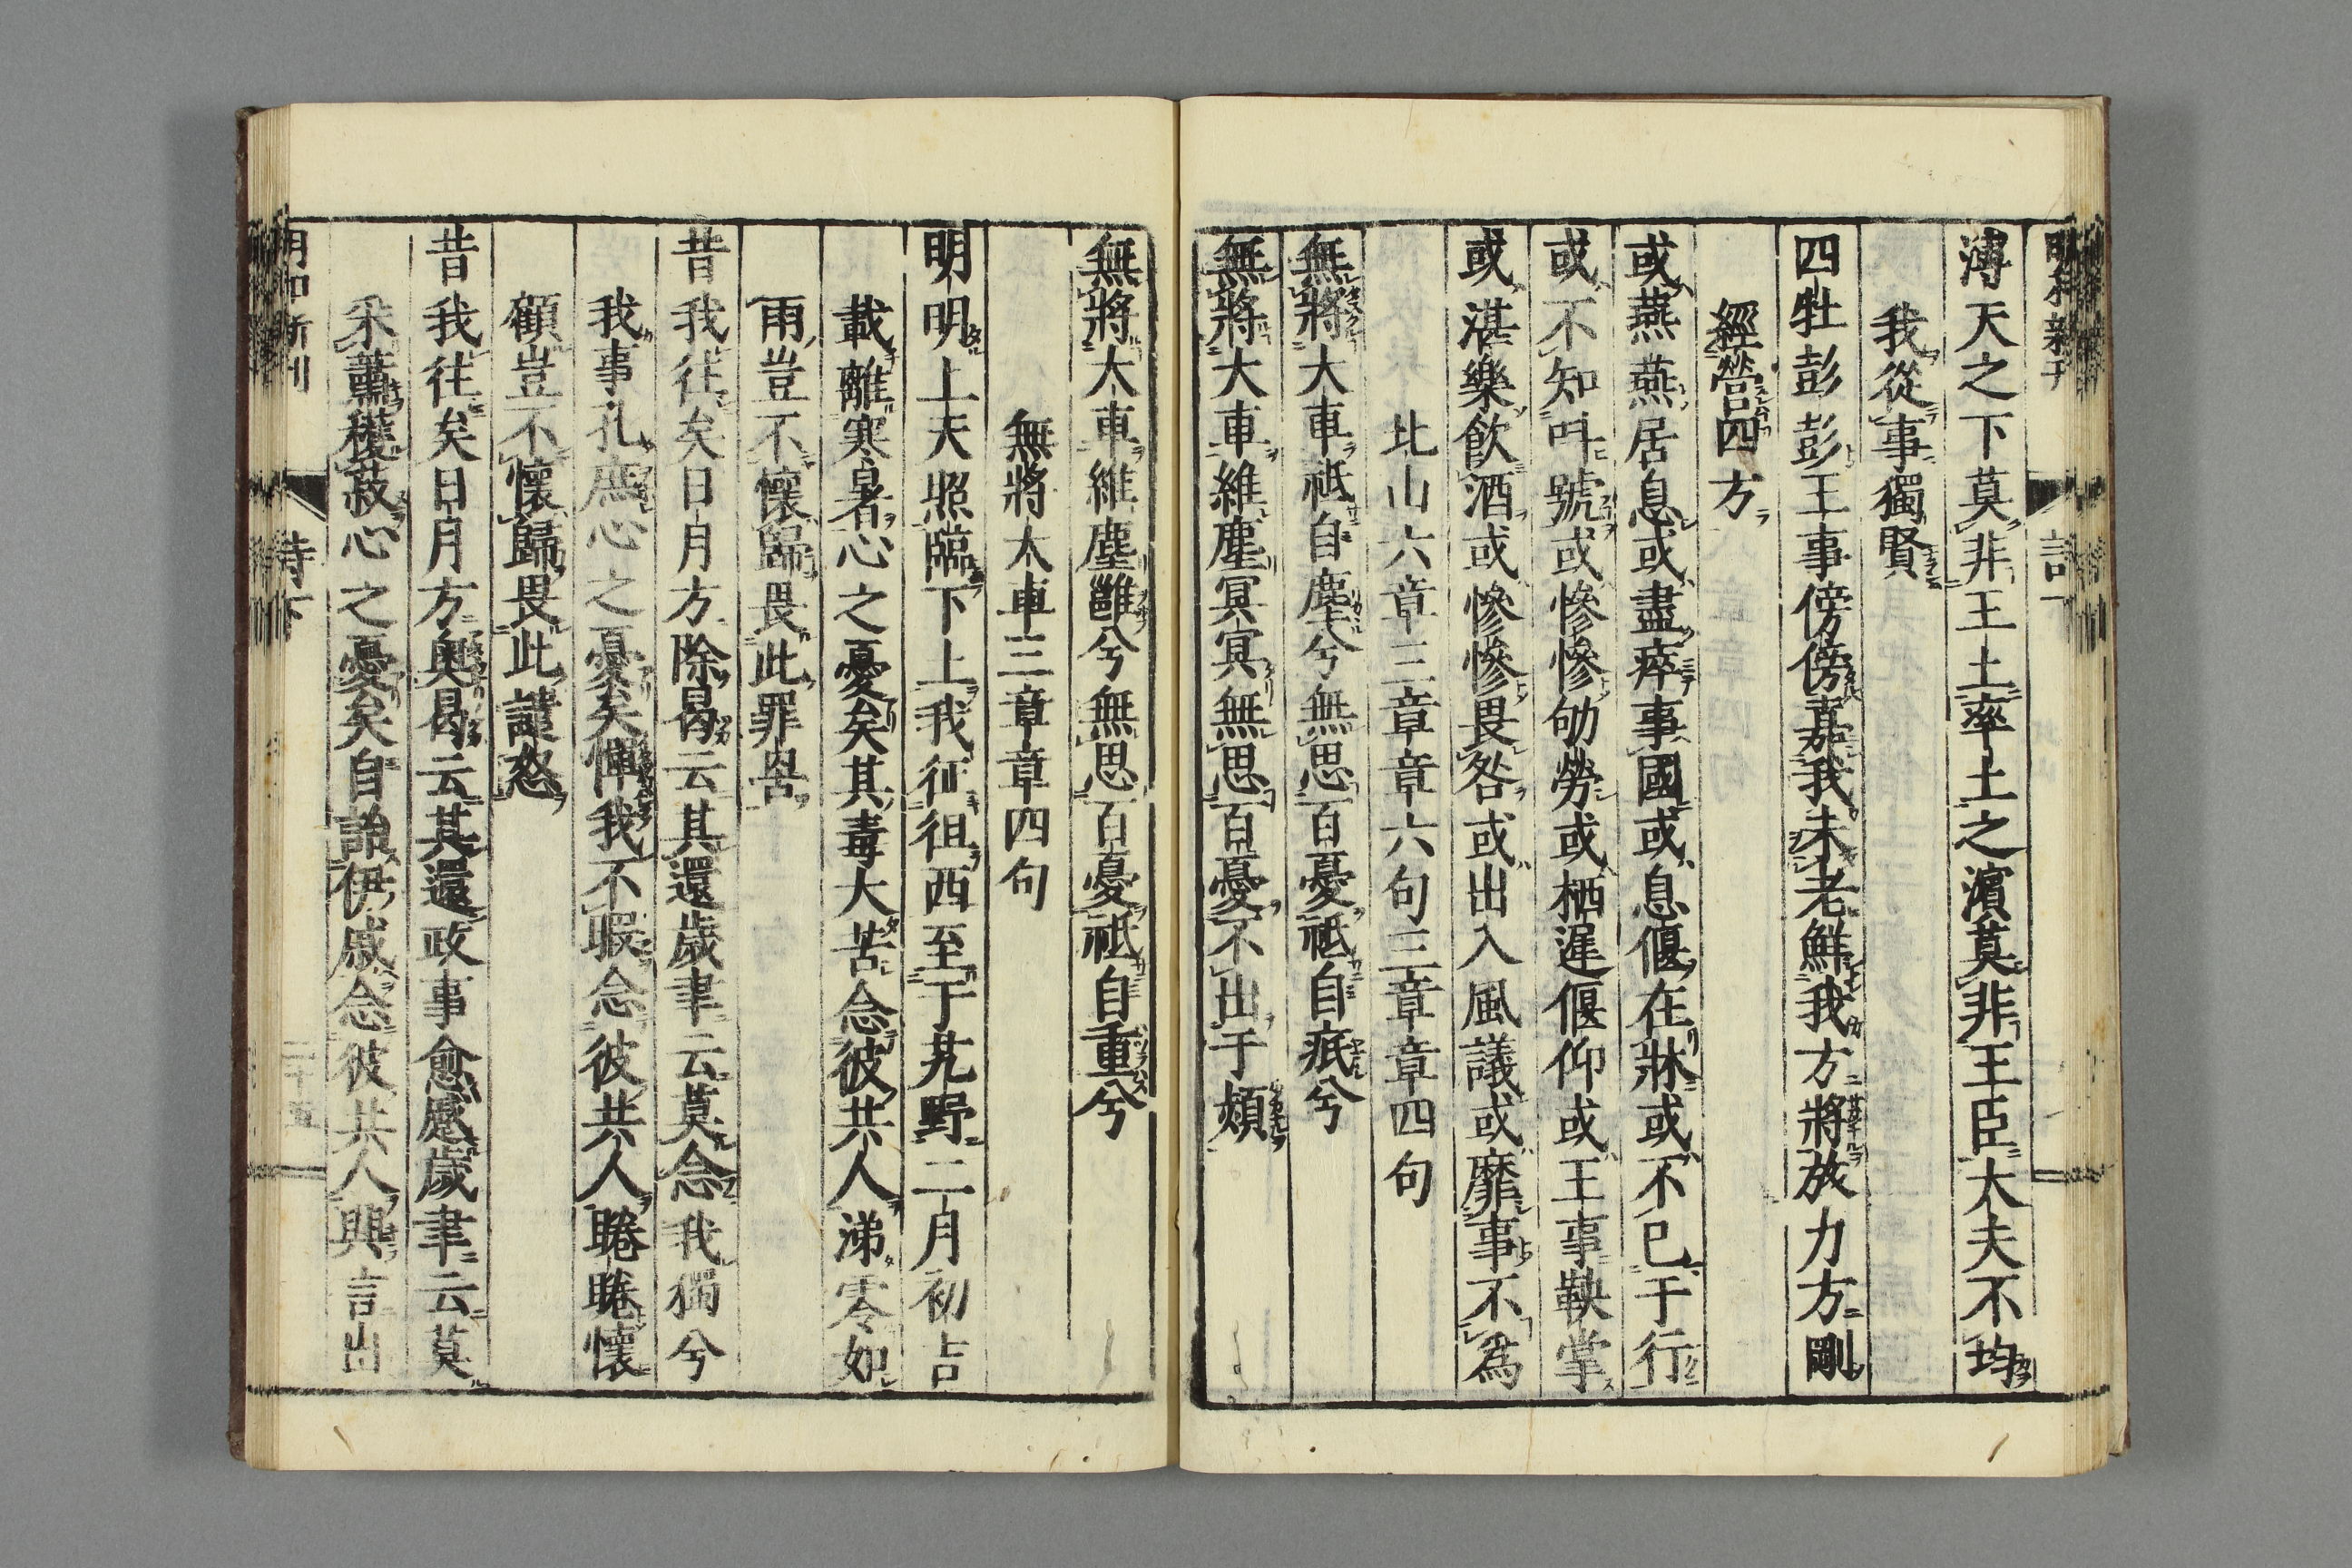 溥天之下莫非王土率土之濱莫非王臣大夫不均
我從事獨賢
四牡彭彭王事傍傍嘉我未老鮮我方將旅力方剛
經營四方
或燕燕居息或盡瘁事國或息偃在牀或不已于行
或不知叫號或慘慘劬勞或栖遲偃仰或王事鞅掌
或湛樂飲酒或慘慘畏咎或出入風議或靡事不為
北山六章三章章六句三章章四句
無將大車祇自塵兮無思百憂祇自疧兮
無將大車維塵冥冥無思百憂不出于熲
無將大車維塵雝兮無思百憂祇自重兮
無將大車三章章四句
明明上天照臨下土我征徂西至于艽野二月初吉
載離寒暑心之憂矣其毒大苦念彼共人涕零如
雨豈不懷歸畏此罪罟
昔我往矣日月方除曷云其還歲聿云莫念我獨兮
我事孔庶心之憂矣憚我不暇念彼共人睠睠懷
顧豈不懷歸畏此譴怒
昔我往矣日月方奧曷云其還政事愈蹙歲聿云莫
采蕭穫菽心之憂矣自詒伊戚念彼共人興言出
明和新刊
詩下
二十五